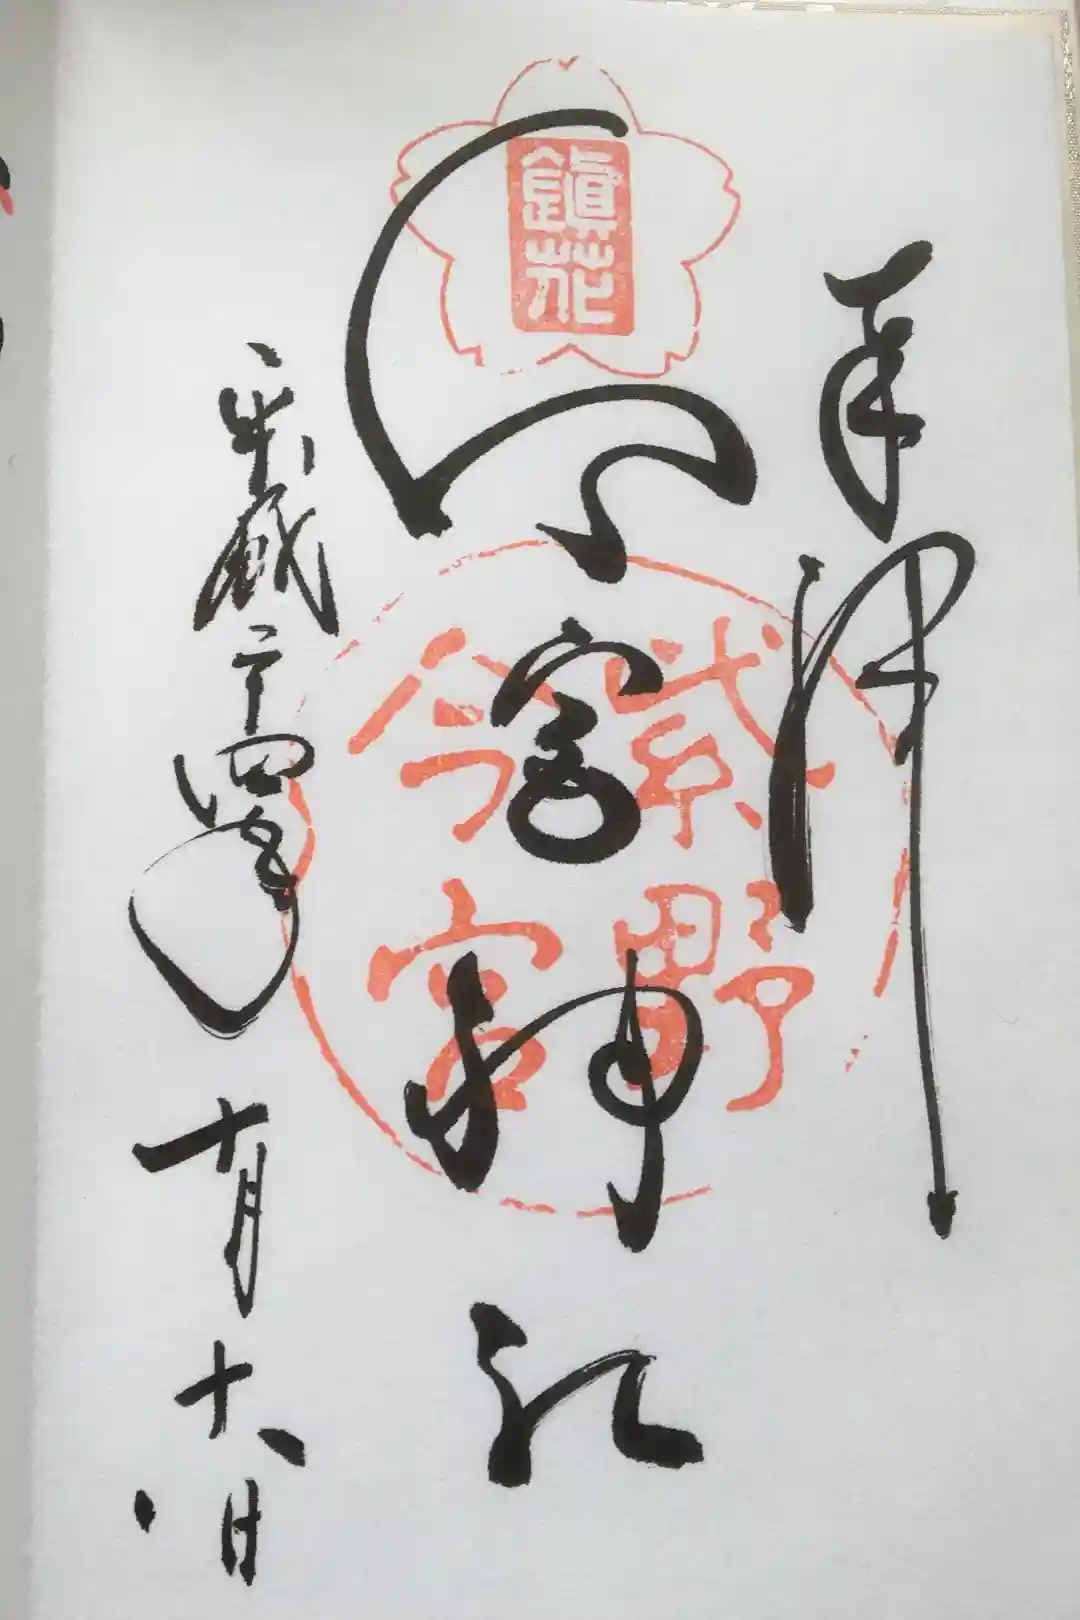 奉拝
鎭花
今宮神社
紫野
今宮
平成二十四年十月十八日